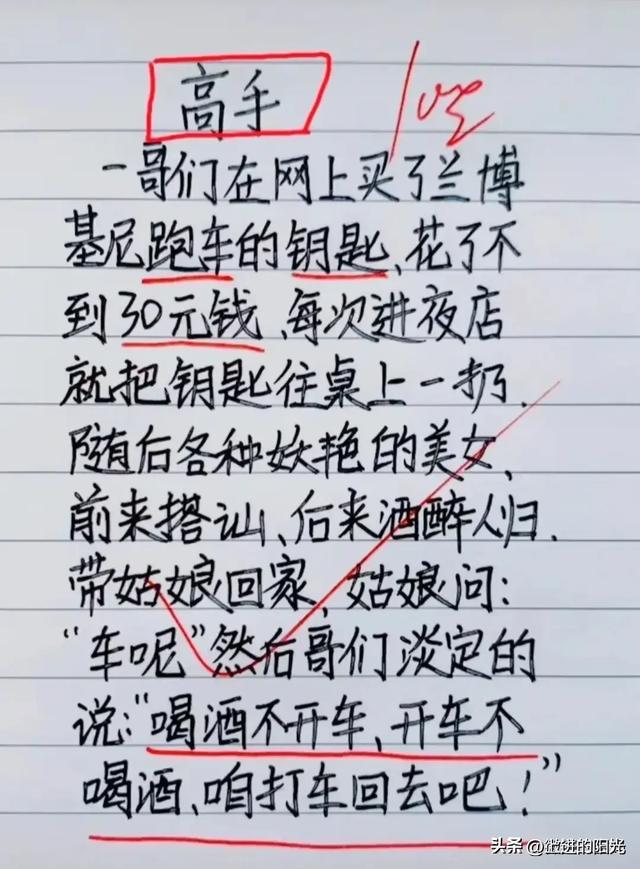 高手
一哥们在网上买了兰博
基尼跑车的钥匙、花了不
到30元钱、每次进夜店
就把钥匙往桌上一扔.
随后各种妖艳的美女、
前来搭讪、后来酒醉人归.
带姑娘回家、姑娘问:
“车呢”然后哥们淡定的
说:“喝酒不开车、开车不
喝酒、咱打车回去吧!”
头条 @微进的阳光